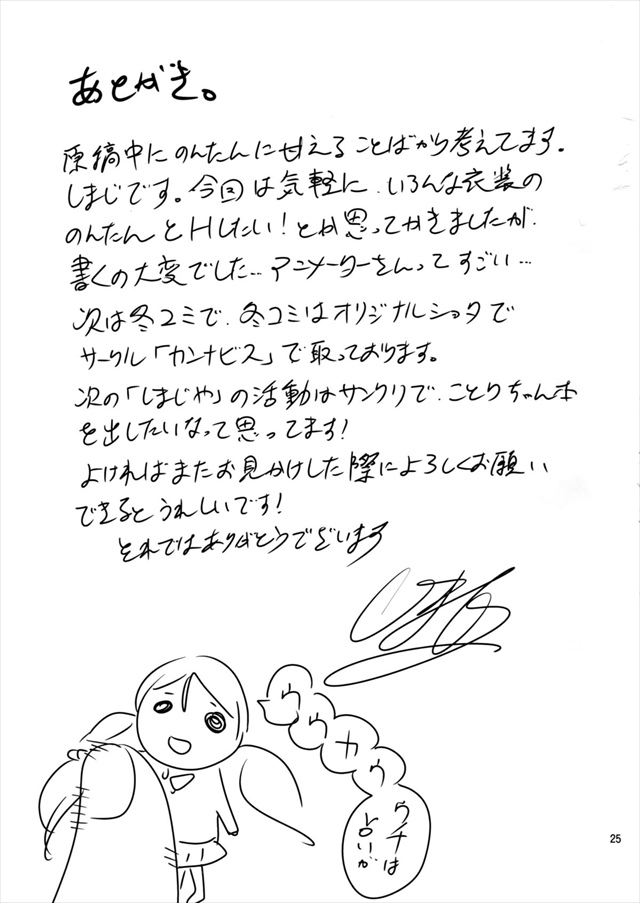 あとがき。
原稿中にのんたんに甘えることばかり考えてます。
しまじです。今回は気軽に、いろんな衣装の
のんたんとHしたい!とか思ってかきましたが、
書くの大変でした…アニメーターさんってすごい…
次は冬コミで、冬コミはオリジナルショタで
サークル「カンナビス」で取っております。
次の「しまじや」の活動はサンクリで、ことりちゃん本
を出したいなって思ってます!
よければまたお見かけした際によろしくお願い
できるとうれしいです!
それではありがとうございます
ウチは
占いが
25